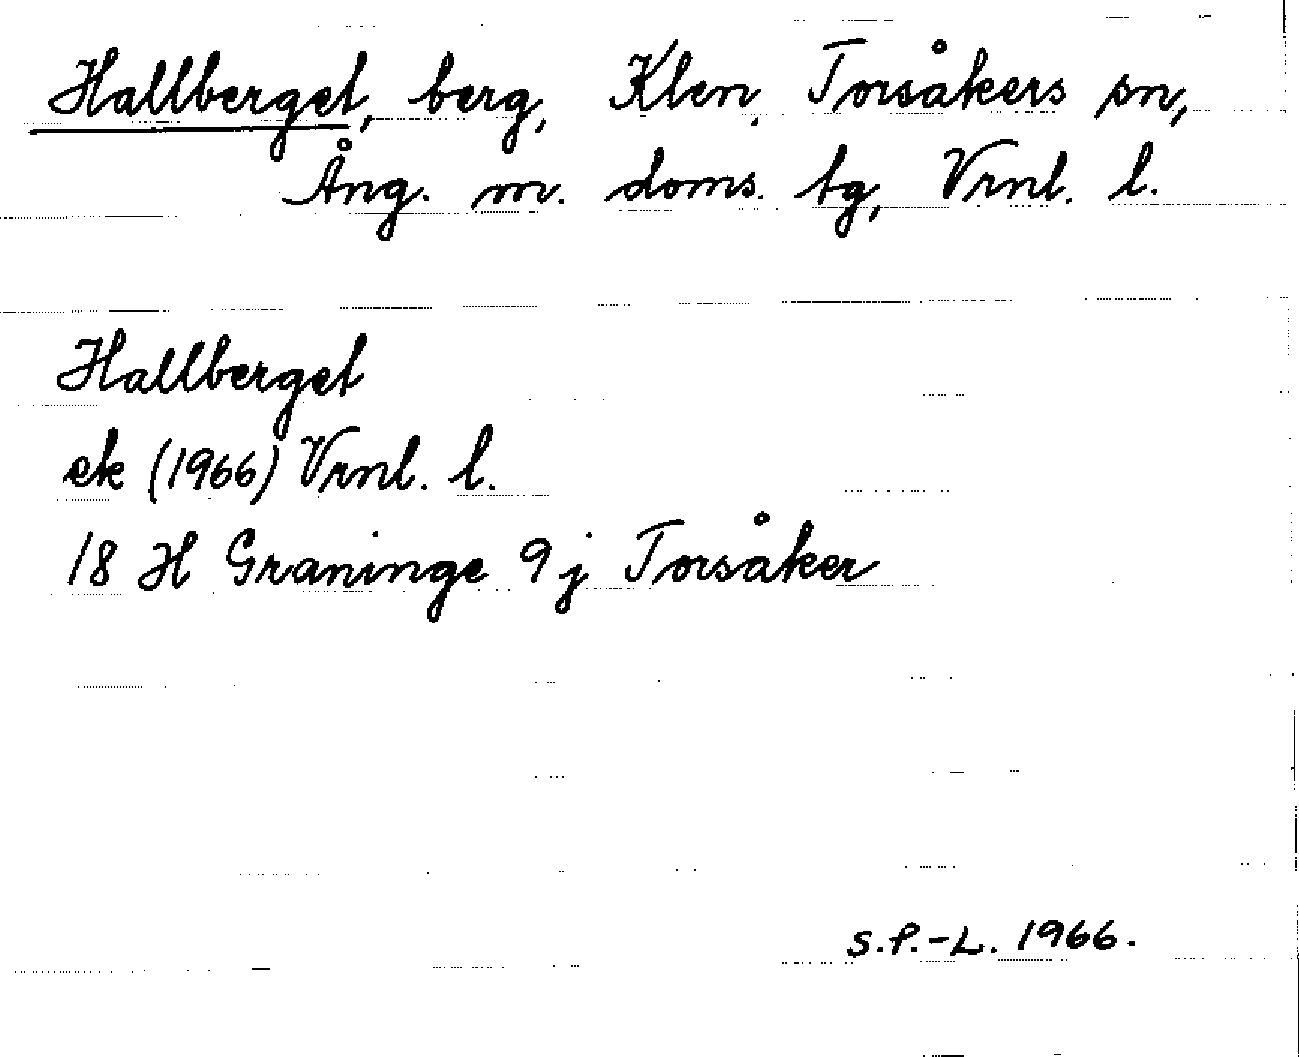 Hallberget, berg, Klen, Torsåkers sn,
Ång. m. doms. tg, Vrnl. l.
Hallberget
ek (1966) Vrnl. l.
18 H Graninge 9 j Torsåker
S.P.-L. 1966.